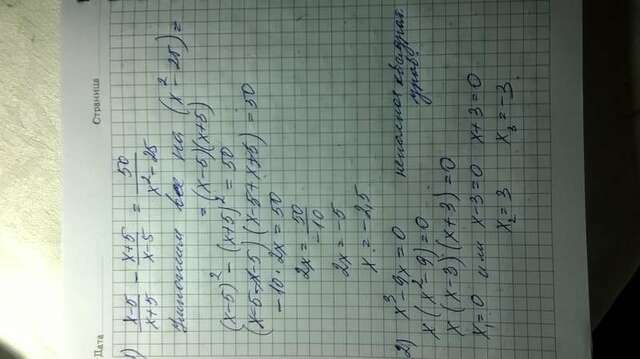 Дата Страница
1) x-5/x+5 - x+5/x-5 = 50/x²-25
Умножим все на (x²-25)=
= (x-5)(x+5)
(x-5)² - (x+5)² = 50
(x-5-x-5)(x-5+x+5) = 50
-10·2x = 50
2x = 50/-10
2x = -5
x = -2,5
2) x³-9x=0 неполное квадрат.
x(x²-9)=0 уравн.
x(x-3)(x+3)=0
x₁=0 или x-3=0 x+3=0
x₂=3 x₃=-3